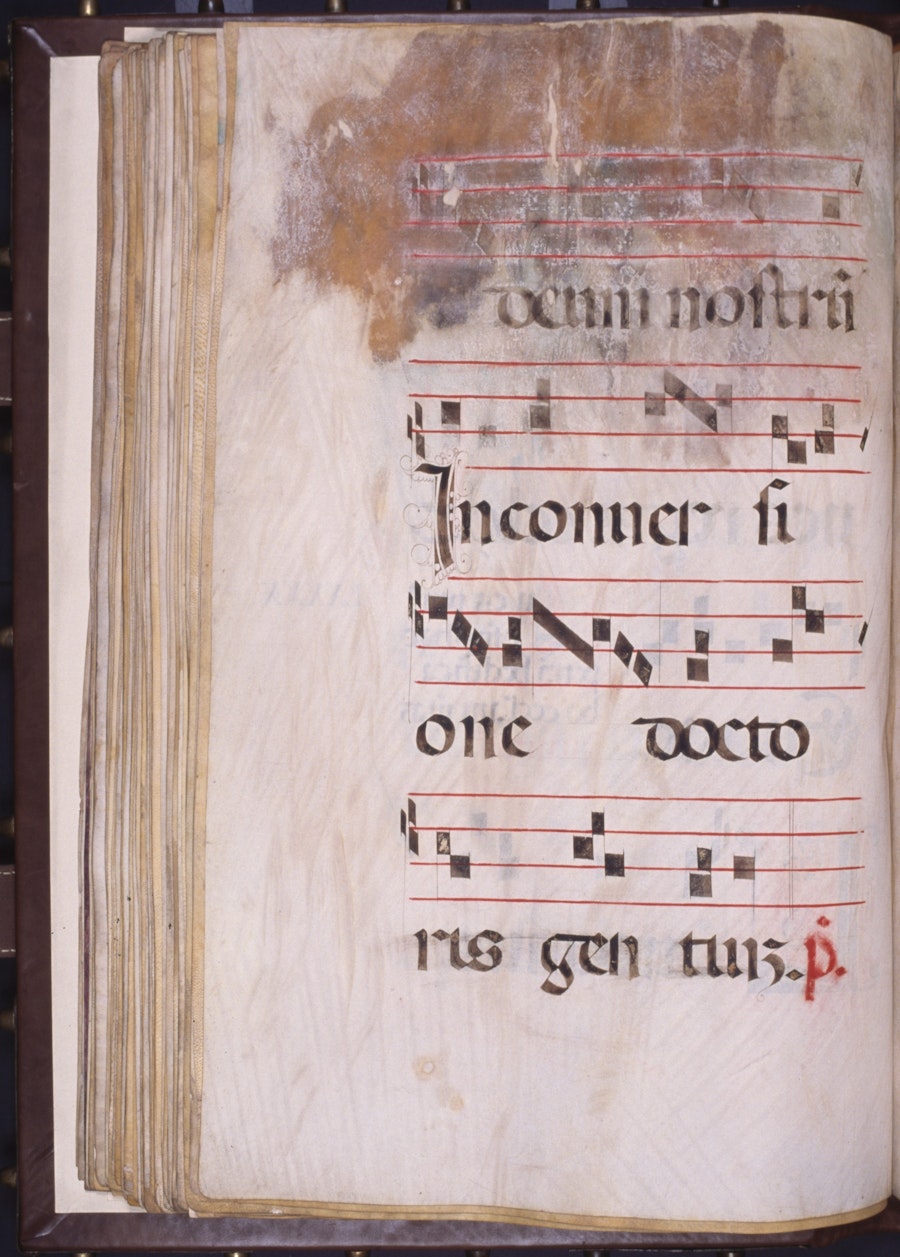 deum nostrū
Inconuer si
one docto
ris gen tiuꝫ. p̄.